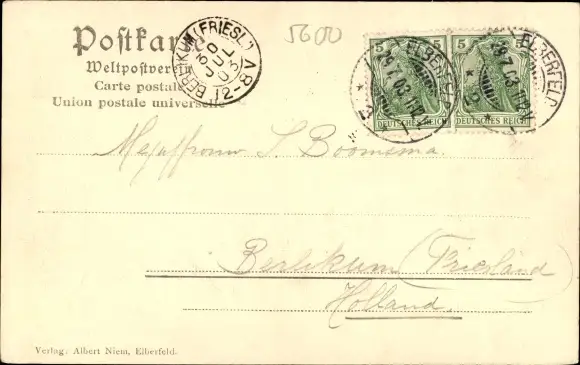 Postkarte
Weltpostverein
Carte postale
Union postale universelle
BERLIKUM (FRIESL.)
30
JUL
03
12-8V
5600
5 5
DEUTSCHES REICH DEUTSCHES REICH
ELBERFELD
29.7.03
ELBERFELD
29.7.03
Mejuffrouw S. Boomsma.
Berlikum (Friesland)
Holland.
Verlag: Albert Niem, Elberfeld.